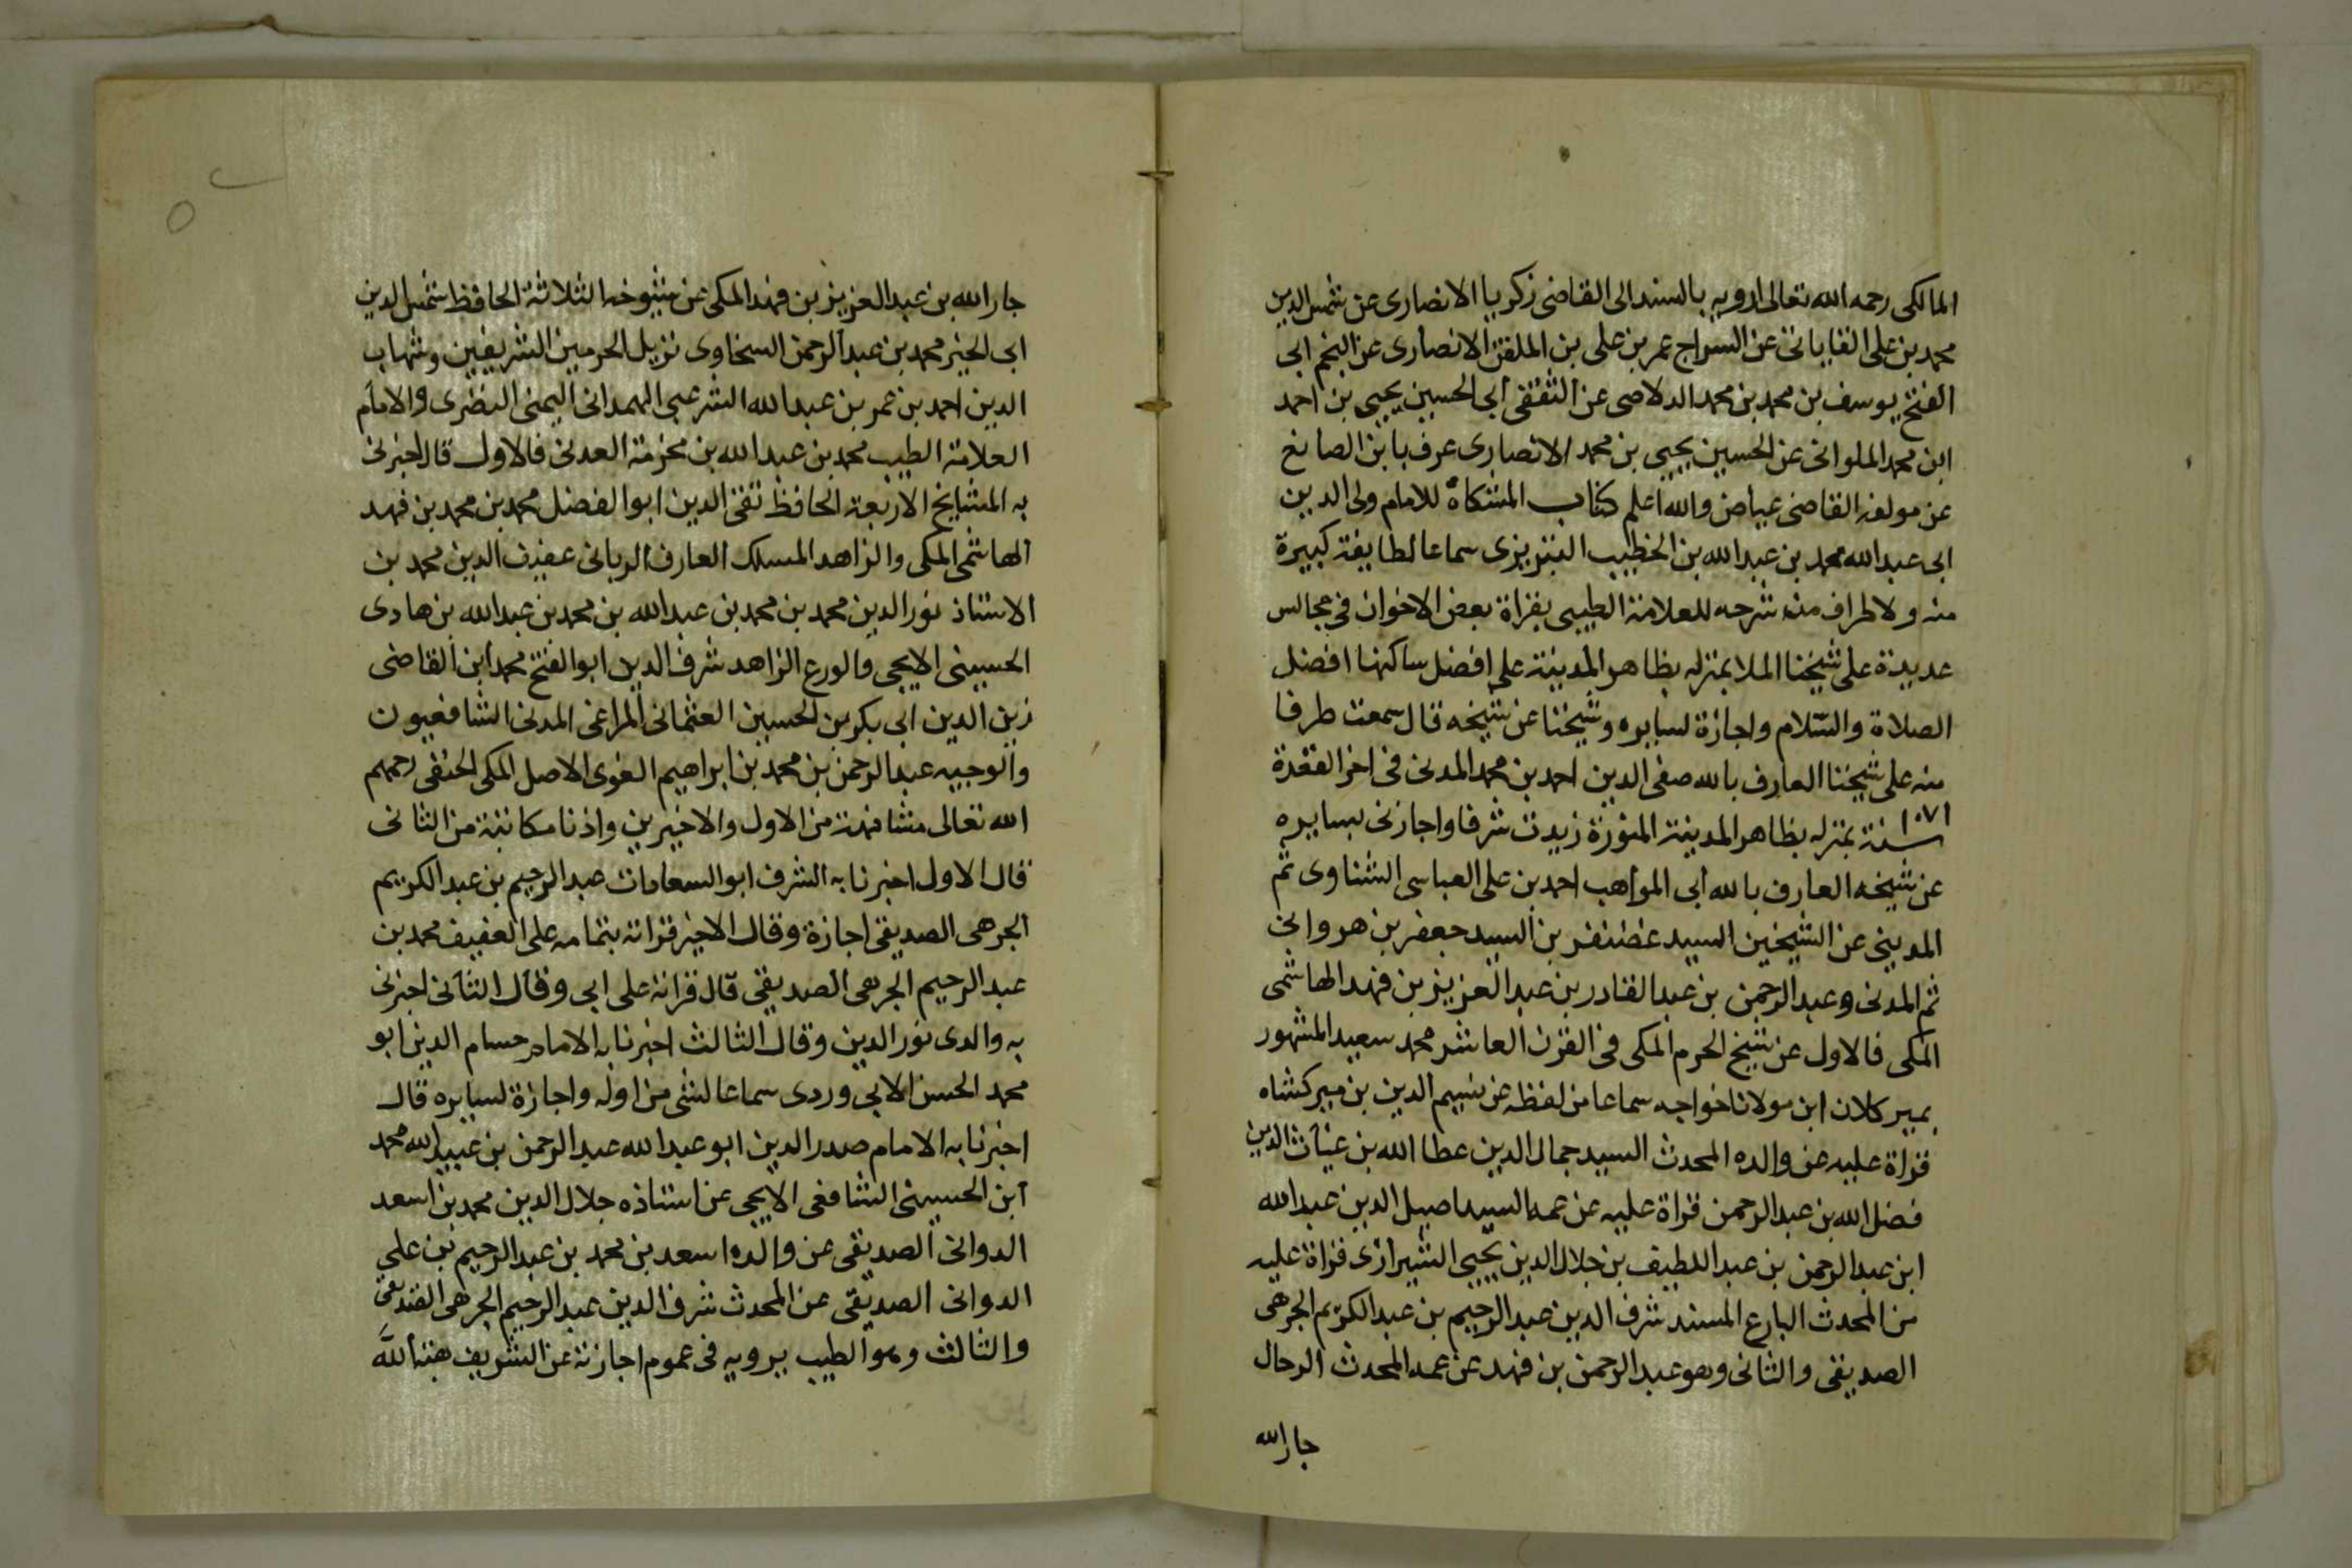 المالكى رحمه الله تعالى ارويه بالسند الى القاضى زكريا الانصارى عن شمس الدين
محمد بن على القاياتى عن السراج عمر بن على بن الملقن الانصارى عن النجم ابى
الفتح يوسف بن محمد بن محمد الدلاصى عن الثقفى ابى الحسين يحيى بن احمد
ابن محمد الملوانى عن الحسين يحيى بن محمد الانصارى عرف بابن الصايغ
عن مولفه القاضى عياض والله اعلم كتاب المشكاة للامام ولى الدين
ابى عبد الله محمد بن عبد الله بن الخطيب التبريزى سماعا لطايفة كبيرة
منه ولاطراف من شرحه للعلامة الطيبى بقراة بعض الاخوان فى مجالس
عديدة على شيخنا الملا بمنزله بظاهر المدينة على افضل ساكنها افضل
الصلاة والسّلام واجازة لسايره وشيخنا عن شيخه قال سمعت طرفا
منه على شيخنا العارف بالله صفى الدين احمد بن محمد المدنى فى اخر القعدة
سنة ١٠٧١ بمنزله بظاهر المدينة المنورة زيدت شرفا واجازنى بسايره
عن شيخه العارف بالله ابى المواهب احمد بن على العباسى الشناوى ثم
المدينى عن الشيخين السيد غضنفر بن السيد جعفر بن هروانى
ثم المدنى وعبد الرحمن بن عبد القادر بن عبد العزيز بن فهد الهاشمى
المكى فالاول عن شيخ الحرم المكى فى القرن العاشر محمد سعيد المشهور
بمير كلان ابن مولانا خواجه سماعا من لفظه عن نسيم الدين بن مير كشاه
قراة عليه عن والده المحدث السيد جمال الدين عطا الله بن غياث الدين
فضل الله بن عبد الرحمن قراة عليه عن عمه السيد اصيل الدين عبد الله
ابن عبد الرحمن بن عبد اللطيف بن جلال الدين يحيى الشيرازى قراة عليه
من المحدث البارع المسند شرف الدين عبد الرحيم بن عبد الكريم الجرهى
الصديقى والثانى وهو عبد الرحمن بن فهد عن عمه المحدث الرحال
جار الله
جار الله بن عبد العزيز بن فهد المكى عن شيوخه الثلاثة الحافظ شمس الدين
ابى الخير محمد بن عبد الرحمن السخاوى نزيل الحرمين الشريفين وشهاب
الدين احمد بن عمر بن عبد الله الشرعبى الهمدانى اليمنى النضرى والامام
العلامة الطيب محمد بن عبد الله بن مخرمة العدنى فالاول قال اخبرنى
به المشايخ الاربعة الحافظ تقى الدين ابو الفضل محمد بن محمد بن فهد
الهاشمى المكى والزاهد المسلك العارف الربانى عفيف الدين محمد بن
الاستاذ نور الدين محمد بن محمد بن عبد الله بن محمد بن عبد الله بن هادى
الحسينى الايجى والورع الزاهد شرف الدين ابو الفتح محمد ابن القاضى
زين الدين ابى بكر بن الحسين العثمانى المراغى المدنى الشافعيون
والوجيه عبد الرحمن بن محمد بن ابراهيم الغوى الاصل المكى الحنفى رحمهم
الله تعالى مشافهة من الاول والاخيرين واذنا مكاتبة من الثانى
قال الاول اخبرنا به الشرف ابو السعادات عبد الرحيم بن عبد الكريم
الجرهى الصديقى اجازة وقال الاخير قراته بتمامه على العفيف محمد بن
عبد الرحيم الجرهى الصديقى قال قراته على ابى وقال الثانى اخبرنى
به والدى نور الدين وقال الثالث اخبرنا به الامام حسام الدين ابو
محمد الحسن الابى وردى سماعا لشى من اوله واجازة لسايره قال
اخبرنا به الامام صدر الدين ابو عبد الله عبد الرحمن بن عبيد الله محمد
ابن الحسينى الشافعى الايجى عن استاذه جلال الدين محمد بن اسعد
الدوانى الصديقى عن والده اسعد بن محمد بن عبد الرحيم بن على
الدوانى الصديقى عن المحدث شرف الدين عبد الرحيم الجرهى الصديقى
والثالث وهو الطيب يرويه فى عموم اجازته عن الشريف هبة الله